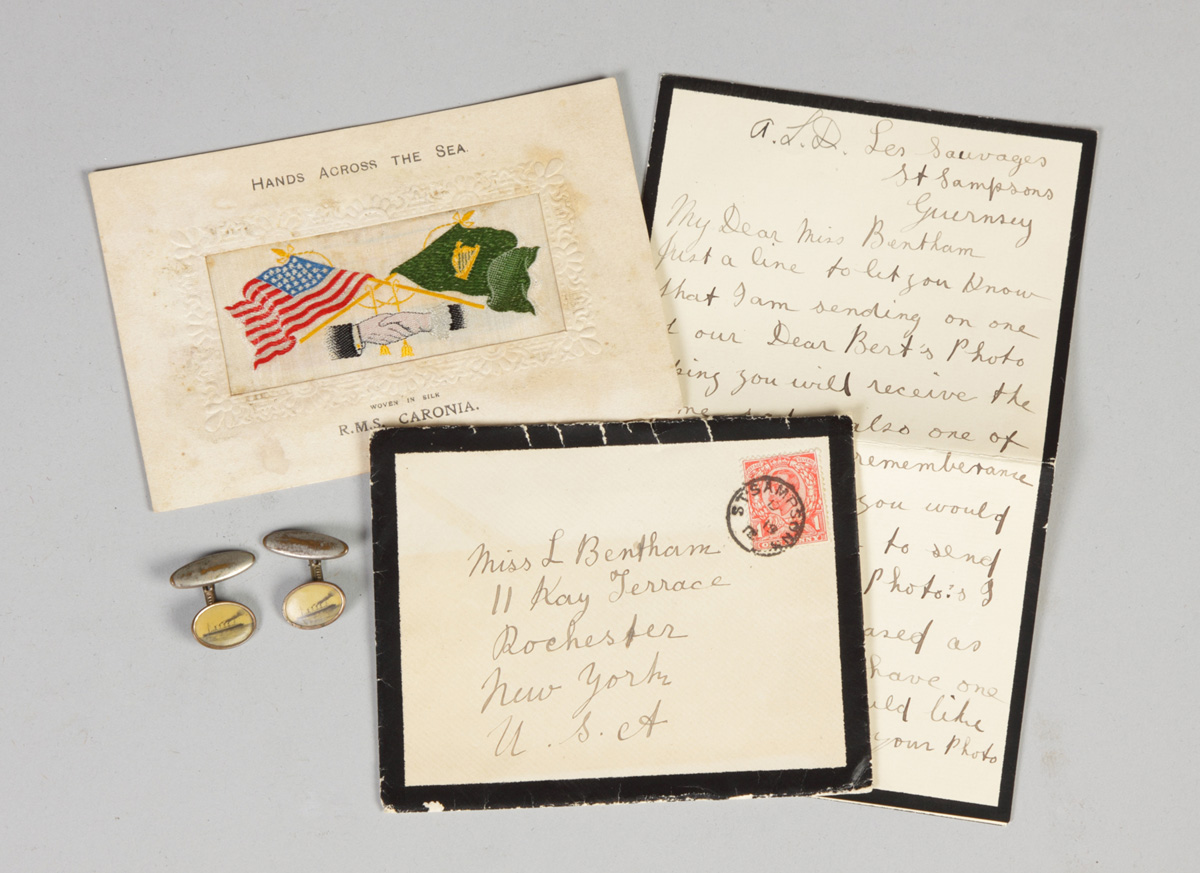 HANDS ACROSS THE SEA.
WOVEN IN SILK
R.M.S. CARONIA.
A.L.D. Les Sauvages
St Sampsons
Guernsey
My Dear Miss Bentham
Just a line to let you Know
that I am sending on one
our Dear Bert's Photo
you will receive the
also one of
rememberance
you would
to send
Photo's I
as
have one
like
your Photo
ST SAMPSONS
Miss L Bentham
11 Kay Terrace
Rochester
New York
U. S. A